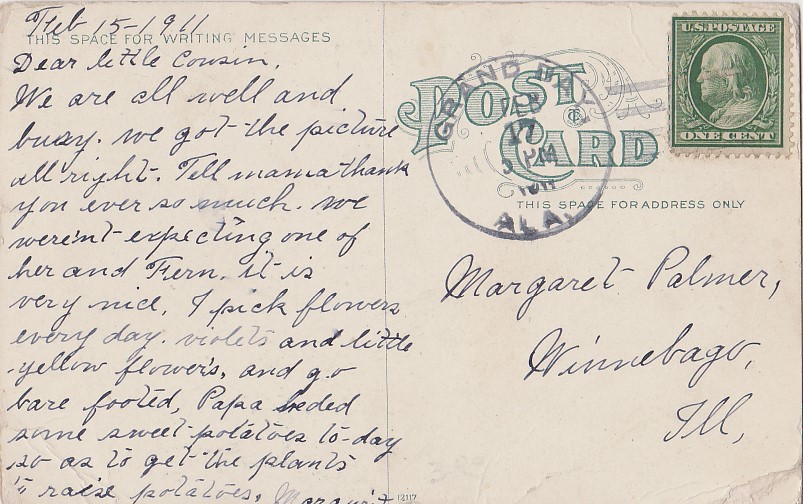 Feb 15-1911
THIS SPACE FOR WRITING MESSAGES
Dear little Cousin,
We are all well and
busy. we got the picture
all right. Tell mama thank
you ever so much. we
weren't expecting one of
her and Fern. it is
very nice, I pick flowers
every day. violets and little
yellow flowers, and go
bare footed, Papa beded
some sweet potatoes to-day
so as to get the plants
to raise potatoes,
12117
POST CARD
GRAND BAY
FEB
17
PM
1911
ALA.
U.S. POSTAGE
ONE CENT
THIS SPACE FOR ADDRESS ONLY
Margaret Palmer,
Winnebago,
Ill,